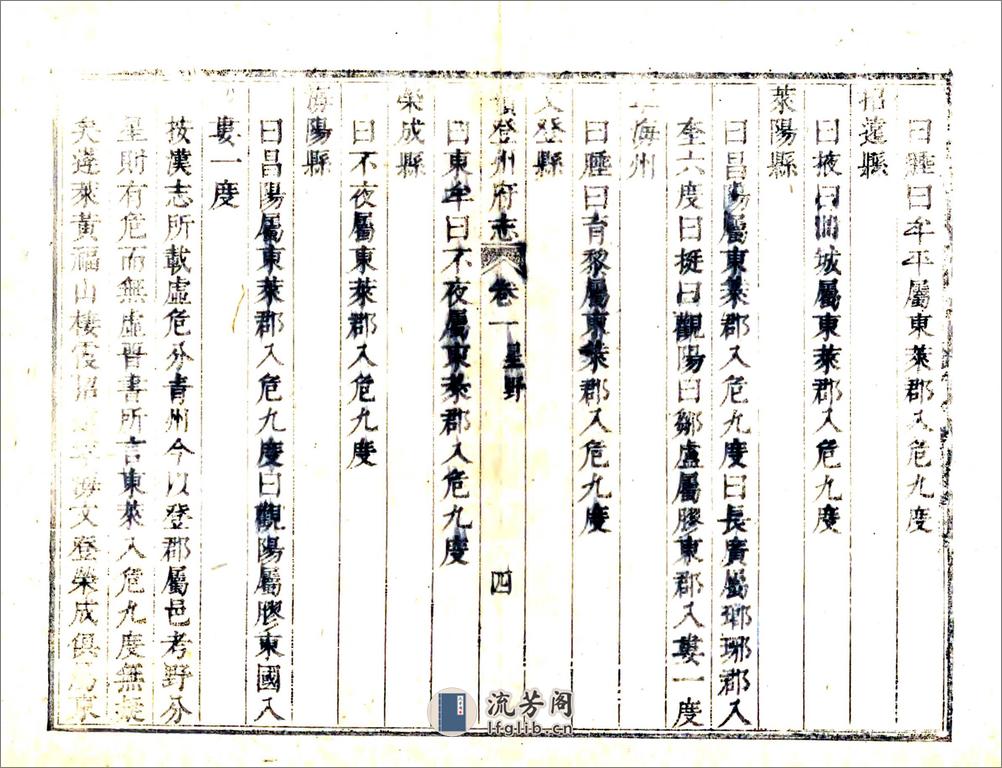 曰腄曰牟平屬東萊郡入危九度
招遠縣
曰掖曰城屬東萊郡入危九度
萊陽縣
曰昌陽屬東萊郡入危九度曰長廣屬瑯琊郡入
奎六度曰挺曰觀陽曰鄒盧屬膠東郡入婁一度
海州
曰腄曰育黎屬東萊郡入危九度
文登縣
曰東牟曰不夜屬東萊郡入危九度
登州府志 卷一 星野 四
榮成縣
曰不夜屬東萊郡入危九度
海陽縣
曰昌陽屬東萊郡入危九度曰觀陽屬膠東國入
婁一度
按漢志所載虛危分青州今以登郡屬邑考野分
星則有危而無虛晉書所言東萊入危九度無疑
矣蓬萊黃福山棲霞招海文登榮成俱東
流芳阁
lfglib.cn